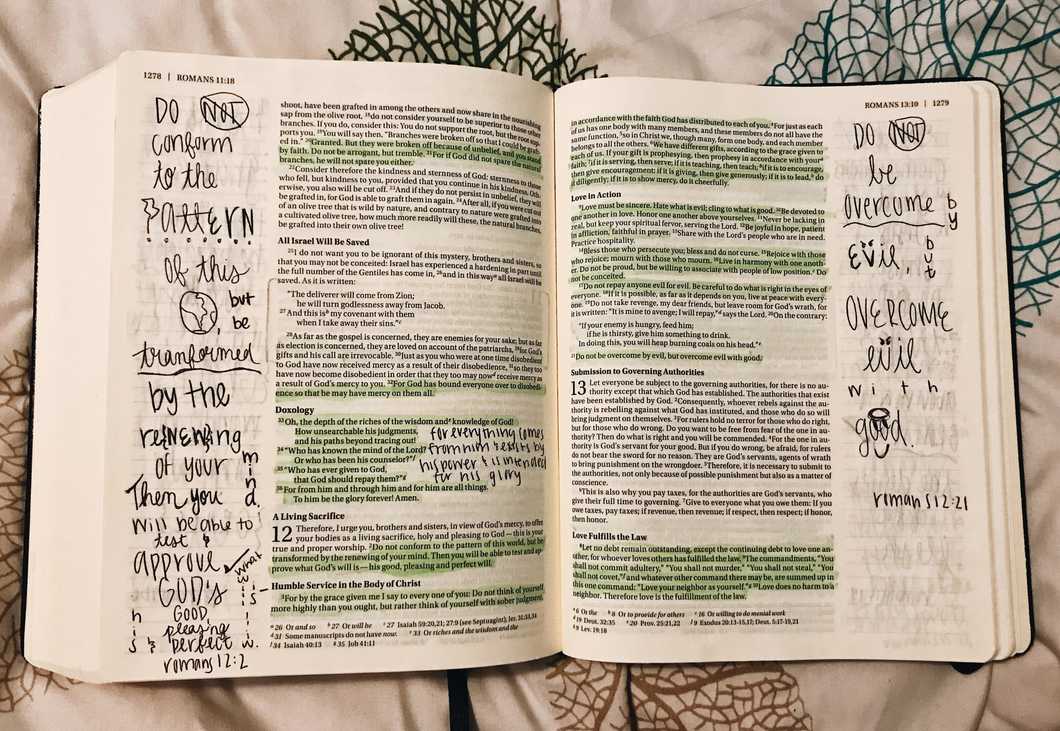 1278 | ROMANS 11:18
DO NOT
conform
to the
PATTERN
of this
but
be
transformed
by the
renewing
of your
mind.
Then you
will be able to
test &
approve
what
GOD'S
will is -
his
GOOD,
pleasing
& perfect w.
romans 12:2
shoot, have been grafted in among the others and now share in the nourishing
sap from the olive root, 18do not consider yourself to be superior to those other
branches. If you do, consider this: You do not support the root, but the root sup-
ports you. 19You will say then, "Branches were broken off so that I could be graft-
ed in." 20Granted. But they were broken off because of unbelief, and you stand
by faith. Do not be arrogant, but tremble. 21For if God did not spare the natural
branches, he will not spare you either.
22Consider therefore the kindness and sternness of God: sternness to those
who fell, but kindness to you, provided that you continue in his kindness. Oth-
erwise, you also will be cut off. 23And if they do not persist in unbelief, they will
be grafted in, for God is able to graft them in again. 24After all, if you were cut out
of an olive tree that is wild by nature, and contrary to nature were grafted into
a cultivated olive tree, how much more readily will these, the natural branches,
be grafted into their own olive tree!
All Israel Will Be Saved
25I do not want you to be ignorant of this mystery, brothers and sisters, so
that you may not be conceited: Israel has experienced a hardening in part until
the full number of the Gentiles has come in, 26and in this way e all Israel will be
saved. As it is written:
"The deliverer will come from Zion;
he will turn godlessness away from Jacob.
27And this is b my covenant with them
when I take away their sins."c
28As far as the gospel is concerned, they are enemies for your sake; but as far
as election is concerned, they are loved on account of the patriarchs, 29for God's
gifts and his call are irrevocable. 30Just as you who were at one time disobedient
to God have now received mercy as a result of their disobedience, 31so they too
have now become disobedient in order that they too may now d receive mercy as
a result of God's mercy to you. 32For God has bound everyone over to disobedi-
ence so that he may have mercy on them all.
Doxology
33Oh, the depth of the riches of the wisdom and e knowledge of God!
How unsearchable his judgments,
and his paths beyond tracing out!
34"Who has known the mind of the Lord?
Or who has been his counselor?"f
35"Who has ever given to God,
that God should repay them?"g
36For from him and through him and for him are all things.
To him be the glory forever! Amen.
for everything comes
from him & exists by
his power & is intended
for his glory
A Living Sacrifice
12 Therefore, I urge you, brothers and sisters, in view of God's mercy, to offer
your bodies as a living sacrifice, holy and pleasing to God — this is your
true and proper worship. 2Do not conform to the pattern of this world, but be
transformed by the renewing of your mind. Then you will be able to test and ap-
prove what God's will is — his good, pleasing and perfect will.
Humble Service in the Body of Christ
3For by the grace given me I say to every one of you: Do not think of yourself
more highly than you ought, but rather think of yourself with sober judgment,
a 26 Or and so b 27 Or will be c 27 Isaiah 59:20,21; 27:9 (see Septuagint); Jer. 31:33,34
d 31 Some manuscripts do not have now. e 33 Or riches and the wisdom and the
f 34 Isaiah 40:13 g 35 Job 41:11
ROMANS 13:10 | 1279
in accordance with the faith God has distributed to each of you. 4For just as each
of us has one body with many members, and these members do not all have the
same function, 5so in Christ we, though many, form one body, and each member
belongs to all the others. 6We have different gifts, according to the grace given to
each of us. If your gift is prophesying, then prophesy in accordance with your a
faith; 7if it is serving, then serve; if it is teaching, then teach; 8if it is to encourage,
then give encouragement; if it is giving, then give generously; if it is to lead, b do
it diligently; if it is to show mercy, do it cheerfully.
Love in Action
9Love must be sincere. Hate what is evil; cling to what is good. 10Be devoted to
one another in love. Honor one another above yourselves. 11Never be lacking in
zeal, but keep your spiritual fervor, serving the Lord. 12Be joyful in hope, patient
in affliction, faithful in prayer. 13Share with the Lord's people who are in need.
Practice hospitality.
14Bless those who persecute you; bless and do not curse. 15Rejoice with those
who rejoice; mourn with those who mourn. 16Live in harmony with one anoth-
er. Do not be proud, but be willing to associate with people of low position. c Do
not be conceited.
17Do not repay anyone evil for evil. Be careful to do what is right in the eyes of
everyone. 18If it is possible, as far as it depends on you, live at peace with every-
one. 19Do not take revenge, my dear friends, but leave room for God's wrath, for
it is written: "It is mine to avenge; I will repay,"d says the Lord. 20On the contrary:
"If your enemy is hungry, feed him;
if he is thirsty, give him something to drink.
In doing this, you will heap burning coals on his head."e
21Do not be overcome by evil, but overcome evil with good.
Submission to Governing Authorities
13 Let everyone be subject to the governing authorities, for there is no au-
thority except that which God has established. The authorities that exist
have been established by God. 2Consequently, whoever rebels against the au-
thority is rebelling against what God has instituted, and those who do so will
bring judgment on themselves. 3For rulers hold no terror for those who do right,
but for those who do wrong. Do you want to be free from fear of the one in au-
thority? Then do what is right and you will be commended. 4For the one in au-
thority is God's servant for your good. But if you do wrong, be afraid, for rulers
do not bear the sword for no reason. They are God's servants, agents of wrath
to bring punishment on the wrongdoer. 5Therefore, it is necessary to submit to
the authorities, not only because of possible punishment but also as a matter of
conscience.
6This is also why you pay taxes, for the authorities are God's servants, who
give their full time to governing. 7Give to everyone what you owe them: If you
owe taxes, pay taxes; if revenue, then revenue; if respect, then respect; if honor,
then honor.
Love Fulfills the Law
8Let no debt remain outstanding, except the continuing debt to love one an-
other, for whoever loves others has fulfilled the law. 9The commandments, "You
shall not commit adultery," "You shall not murder," "You shall not steal," "You
shall not covet,"f and whatever other command there may be, are summed up in
this one command: "Love your neighbor as yourself."g 10Love does no harm to a
neighbor. Therefore love is the fulfillment of the law.
a 6 Or the b 8 Or to provide for others c 16 Or willing to do menial work
d 19 Deut. 32:35 e 20 Prov. 25:21,22 f 9 Exodus 20:13-15,17; Deut. 5:17-19,21
g 9 Lev. 19:18
DO NOT
be
overcome by
EVIL, but
OVERCOME
evil
with
good.
romans 12:21